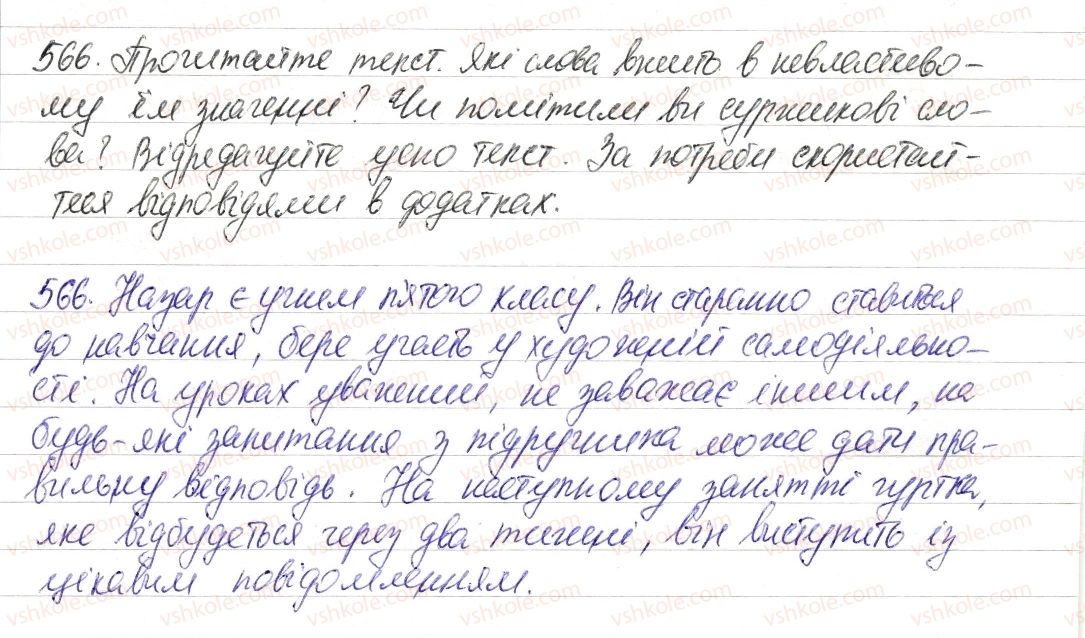 566. Прочитайте текст. Які слова вжить в невластиво-
му їм значенні? Чи помітили ви суржикові сло-
ва? Відредагуйте усно текст. За потреби скористай-
теся відповідями в додатках.
566. Назар є учнем п'ятого класу. Він старанно ставиться
до навчання, бере участь у художній самодіяльно-
сті. На уроках уважний, не заважає іншим, на
будь-які запитання з підручника може дати пра-
вильну відповідь. На наступному занятті гуртка,
яке відбудеться через два тижні, він виступить із
цікавим повідомленням.